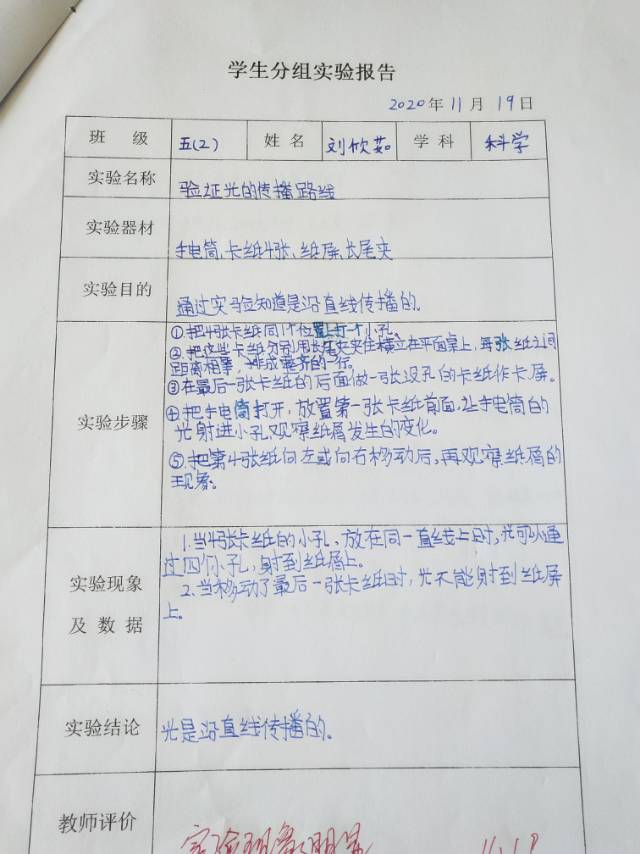 学生分组实验报告
2020年11月19日
班 级 五(2) 姓 名 刘欣茹 学 科 科学
实验名称 验证光的传播路线
实验器材 手电筒、卡纸4张、纸屏、长尾夹
实验目的 通过实验知道是沿直线传播的。
实验步骤
①把4张卡纸同1个位置上打一个小孔。
②把这些卡纸分别用长尾夹夹住横立在平面桌上,每张纸之间
距离相等,排成整齐的一行。
③在最后一张卡纸的后面做一张没孔的卡纸作卡屏。
④把手电筒打开,放置第一张卡纸前面,让手电筒的
光射进小孔,观察纸屑发生的变化。
⑤把第4张纸向左或向右移动后,再观察纸屑的
现象。
实验现象
及 数 据
1.当4张卡纸的小孔,放在同一直线上时,光可以通
过四个小孔,射到纸屑上。
2.当移动了最后一张卡纸时,光不能射到纸屏
上。
实验结论 光是沿直线传播的。
教师评价 实验现象明显